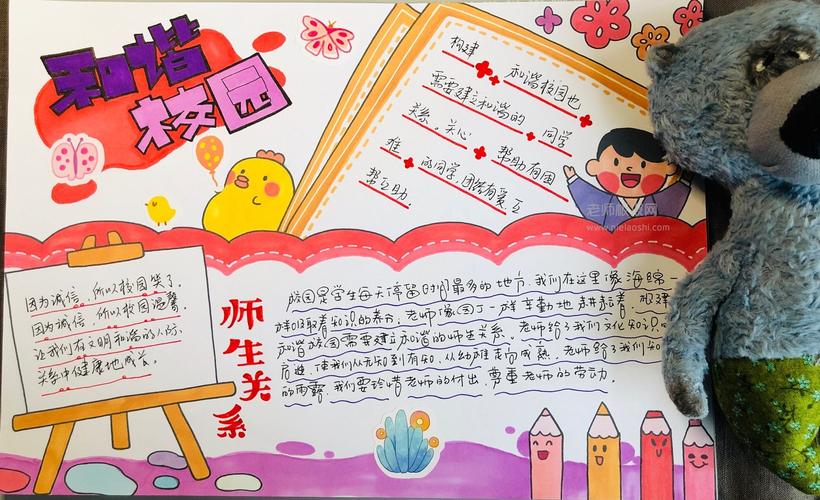 和谐
校园
构建 和谐校园也
需要建立和谐的 同学
关系。关心 帮助有困
难 的同学,团结有爱,互
帮互助。
老师板报网
www.nielaoshi.com
因为诚信,所以校园笑了.
因为诚信,所以校园温馨.
让我们在文明和谐的人际
关系中健康地成长。
师生关系
校园是学生每天停留时间最多的地方.我们在这里像海绵一
样吸取着知识的养分;老师像园丁一样辛勤地耕耘着.构建
和谐校园需要建立和谐的师生关系。老师给了我们文化知识的
启迪,使我们从无知到有知,从幼雅走向成熟,老师给了我们知
的雨露.我们要珍惜老师的付出,尊重老师的劳动.